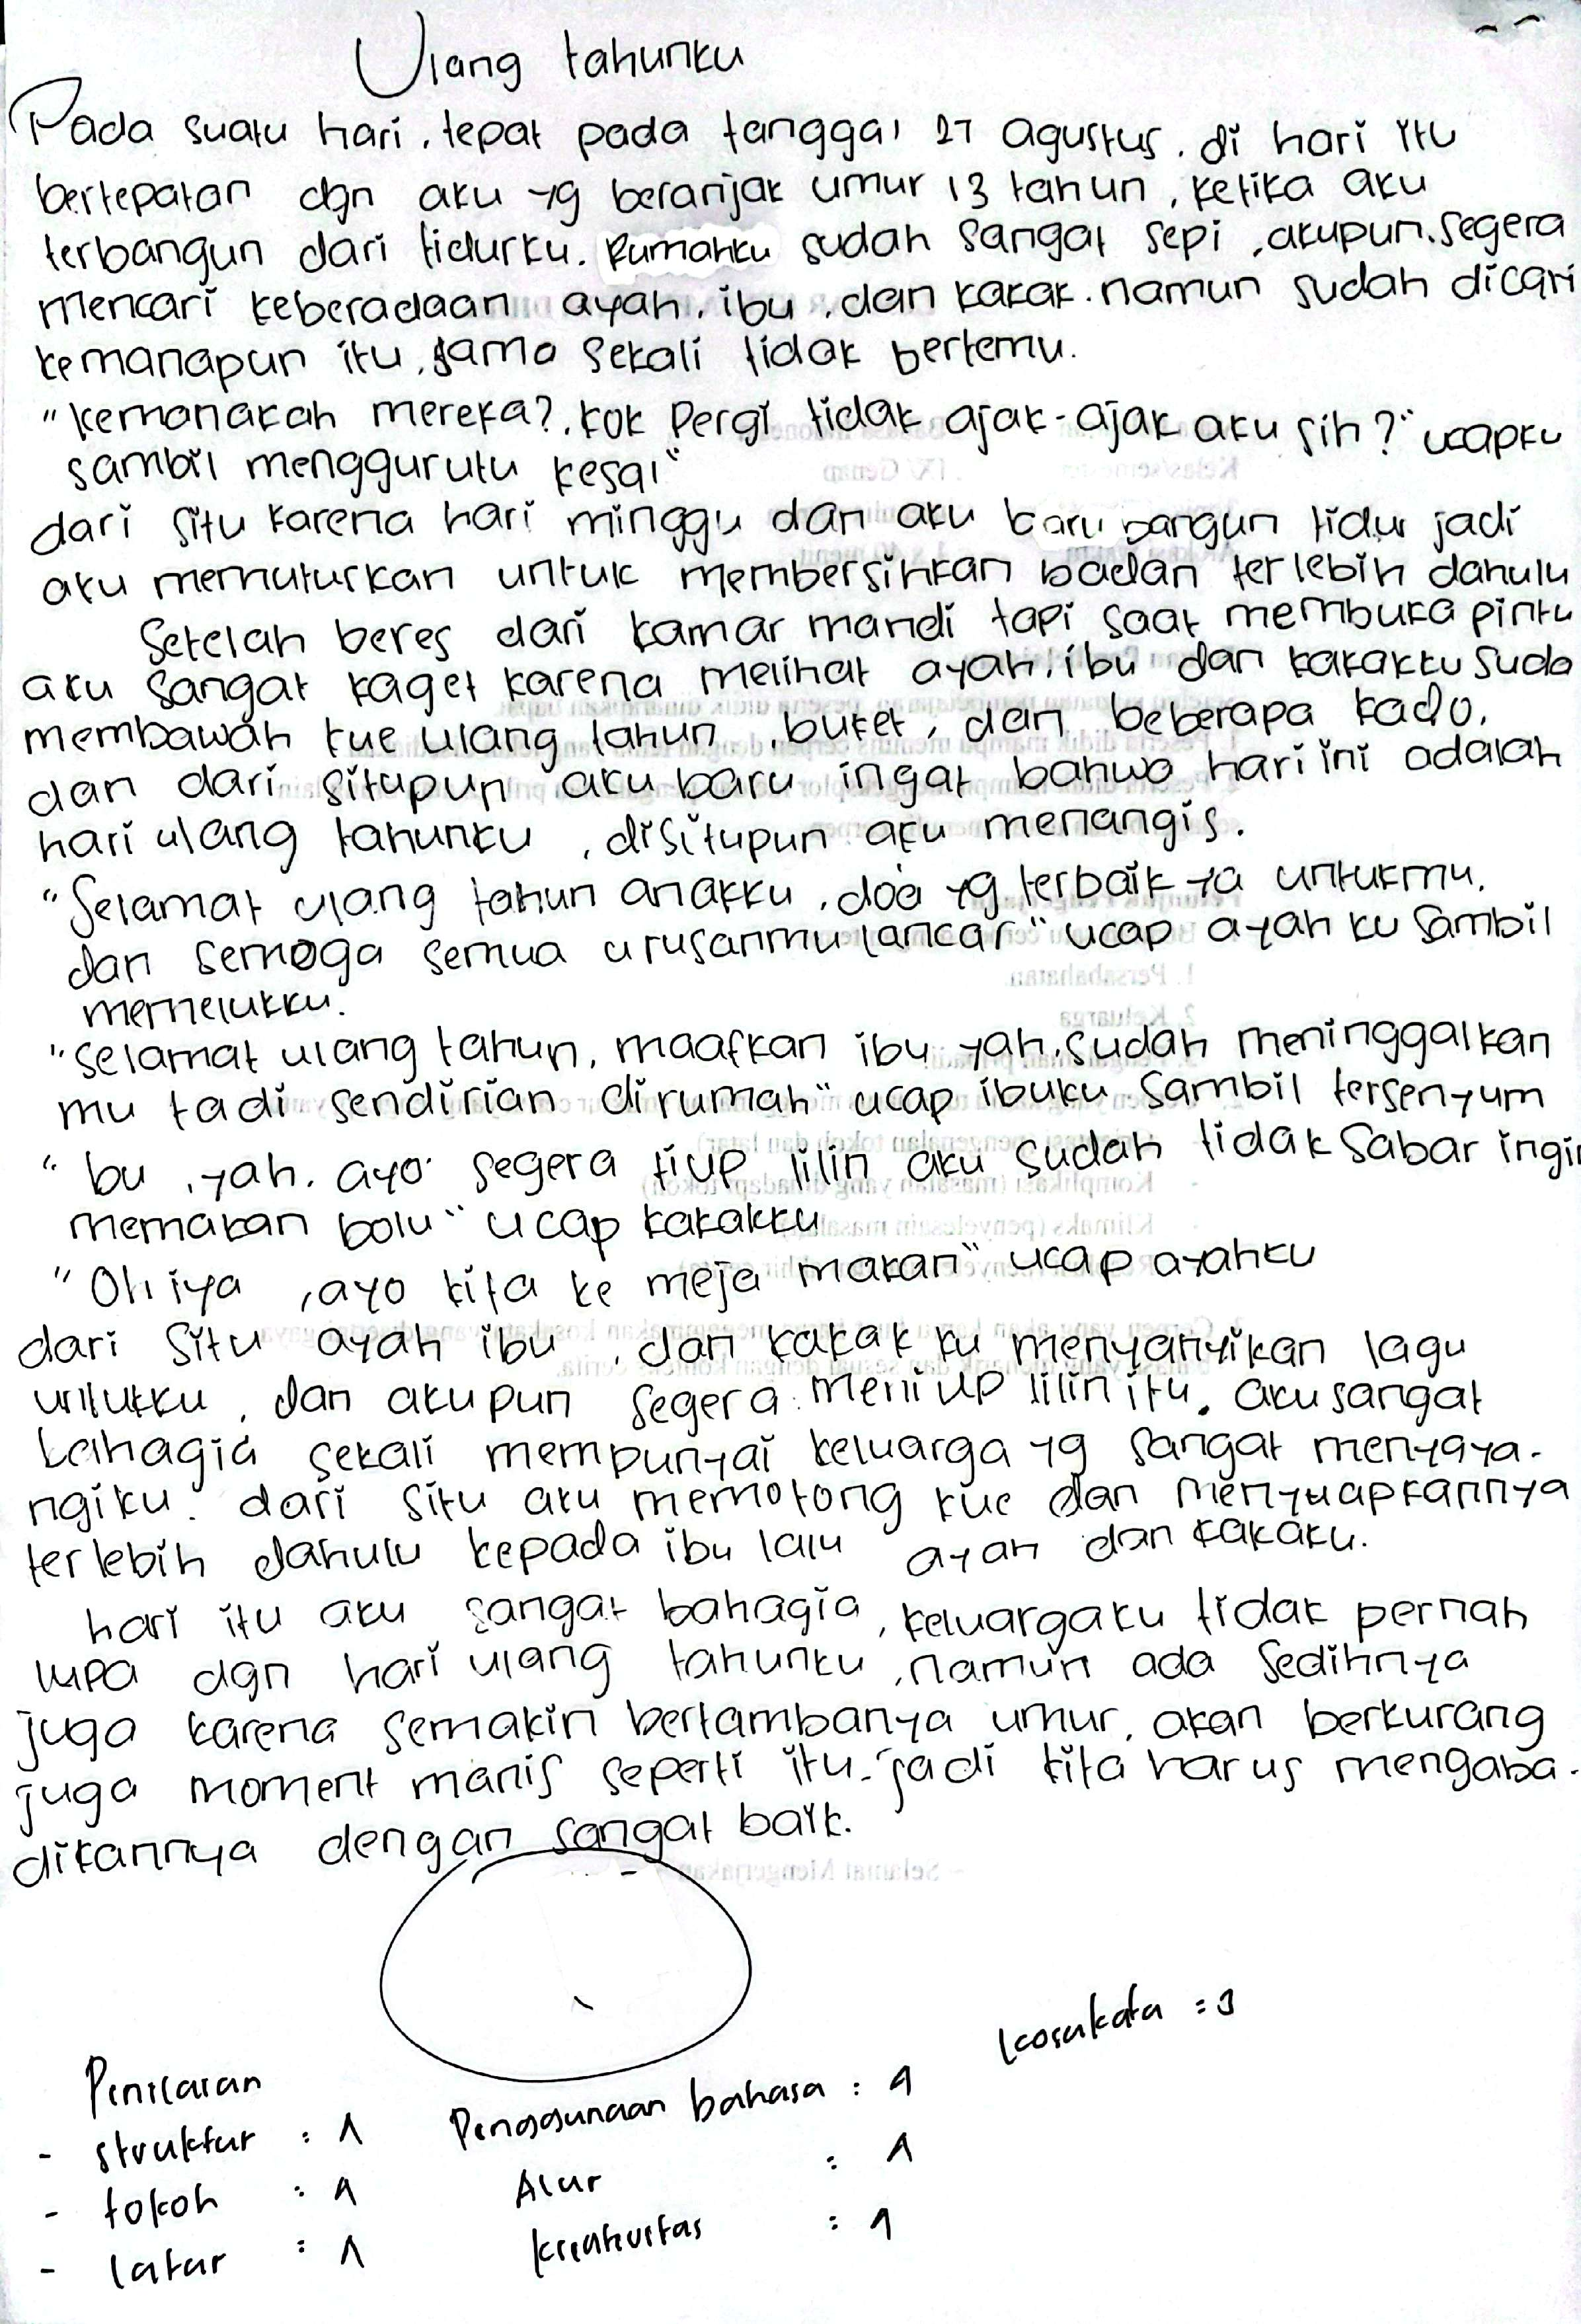 Ulang tahunku
Pada suatu hari, tepat pada tanggal 27 Agustus. di hari itu
bertepatan dgn aku yg beranjak umur 13 tahun, ketika aku
terbangun dari tidurku. Rumahku sudah sangat sepi, akupun segera
mencari keberadaan ayah, ibu, dan kakak. namun sudah dicari
kemanapun itu, sama sekali tidak bertemu.
"kemanakah mereka?, kok pergi tidak ajak-ajak aku sih?" ucapku
sambil menggurutu kesal"
dari situ karena hari minggu dan aku baru bangun tidur jadi
aku memuturkan untuk membersihkan badan terlebih dahulu
Setelah beres dari kamar mandi tapi saat membuka pintu
aku sangat kaget karena melihat ayah, ibu dan kakakku suda
membawah kue ulang tahun, buket, dan beberapa kado,
dan dari situpun aku baru ingat bahwa hari ini adalah
hari ulang tahunku, disitupun aku menangis.
"Selamat ulang tahun anakku, doa yg terbaik ya untukmu,
dan semoga semua urusanmu lancar" ucap ayah ku sambil
memelukku.
"selamat ulang tahun, maafkan ibu yah, sudah meninggalkan
mu tadi sendirian dirumah" ucap ibuku sambil tersenyum
"bu, yah, ayo segera tiup lilin aku sudah tidak sabar ingin
memakan bolu" ucap kakakku
"Oh iya, ayo kita ke meja makan" ucap ayahku
dari situ ayah ibu, dan kakak ku menyanyikan lagu
untukku, dan akupun segera meniup lilin itu. aku sangat
bahagia sekali mempunyai keluarga yg sangat menyaya-
ngiku. dari situ aku memotong kue dan menyuapkannya
terlebih dahulu kepada ibu lalu ayah dan kakaku.
hari itu aku sangat bahagia, keluargaku tidak pernah
lupa dgn hari ulang tahunku, namun ada sedihnya
juga karena semakin bertambanya umur, akan berkurang
juga moment manis seperti itu. jadi kita harus mengaba-
dikannya dengan sangat baik.
kosakata : 3
Penilaian
- struktur : 1 Penggunaan bahasa : 4
- tokoh : 4 Alur : 4
- latar : 1 kreativitas : 4